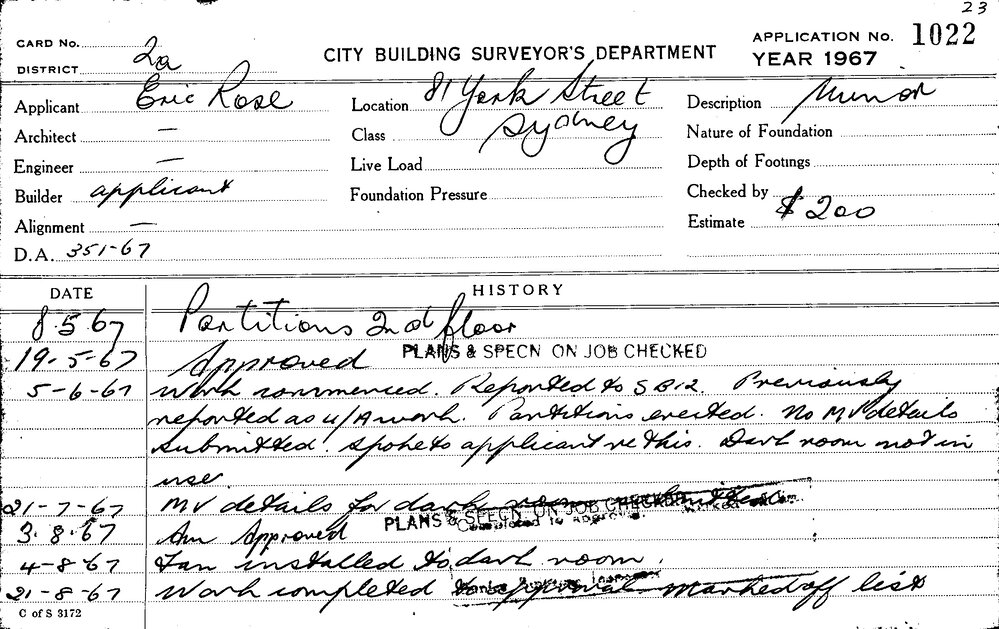 23
CARD No.
DISTRICT 2a
CITY BUILDING SURVEYOR'S DEPARTMENT
APPLICATION No. 1022
YEAR 1967
Applicant Eric Rose
Location 81 York Street
Sydney
Description Minor
Architect —
Class
Nature of Foundation
Engineer —
Live Load
Depth of Footings
Builder applicant
Foundation Pressure
Checked by
Alignment —
Estimate $200
D.A. 351-67
DATE HISTORY
8.5.67 Partitions 2nd floor
19-5-67 Approved PLANS & SPECN ON JOB CHECKED
5-6-67 Work commenced. Reported to SB12. Previously
reported as u/A work. Partitions erected. No MV details
submitted. Spoke to applicant re this. Dark room not in
use.
21-7-67 MV details for dark room submitted
PLANS & SPECN ON JOB CHECKED
3.8.67 Am Approved
4-8-67 Fan installed to dark room.
21-8-67 Work completed to approval Marked off list
C of S 3172